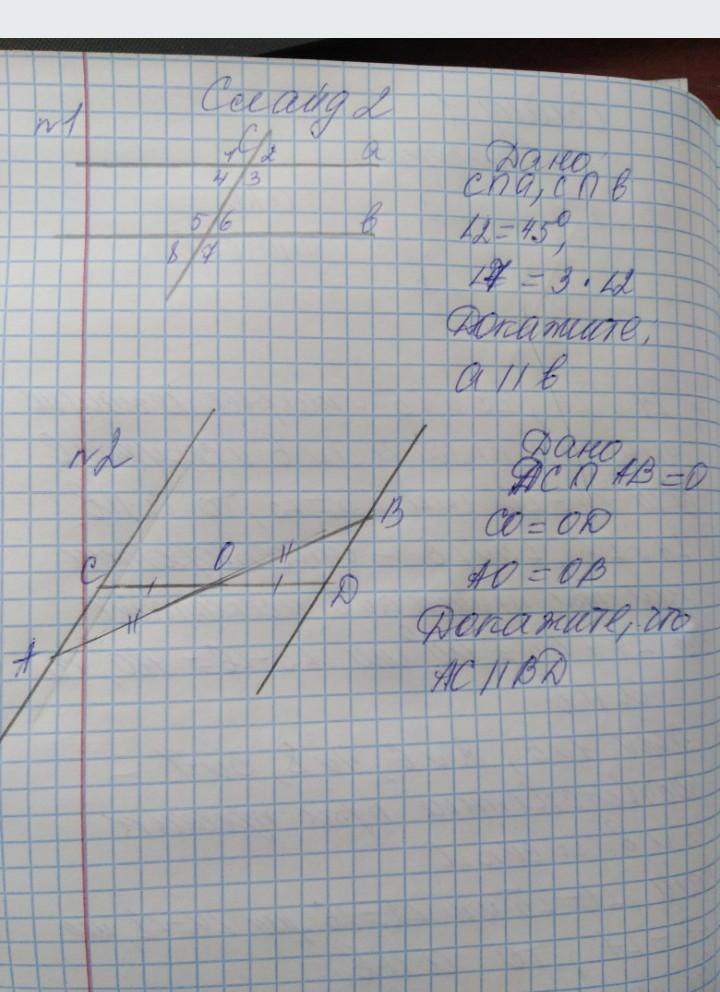 Слайд 2
н1
C
1 2 a
4 3
5 6 в
8 7
Дано
C∩a, C∩в
∠2=45°,
∠7=3·∠2
Докажите,
a||в
н2
C O B
A D
Дано
AC∩AB=O
CO=OD
AO=OB
Докажите, что
AC||BD